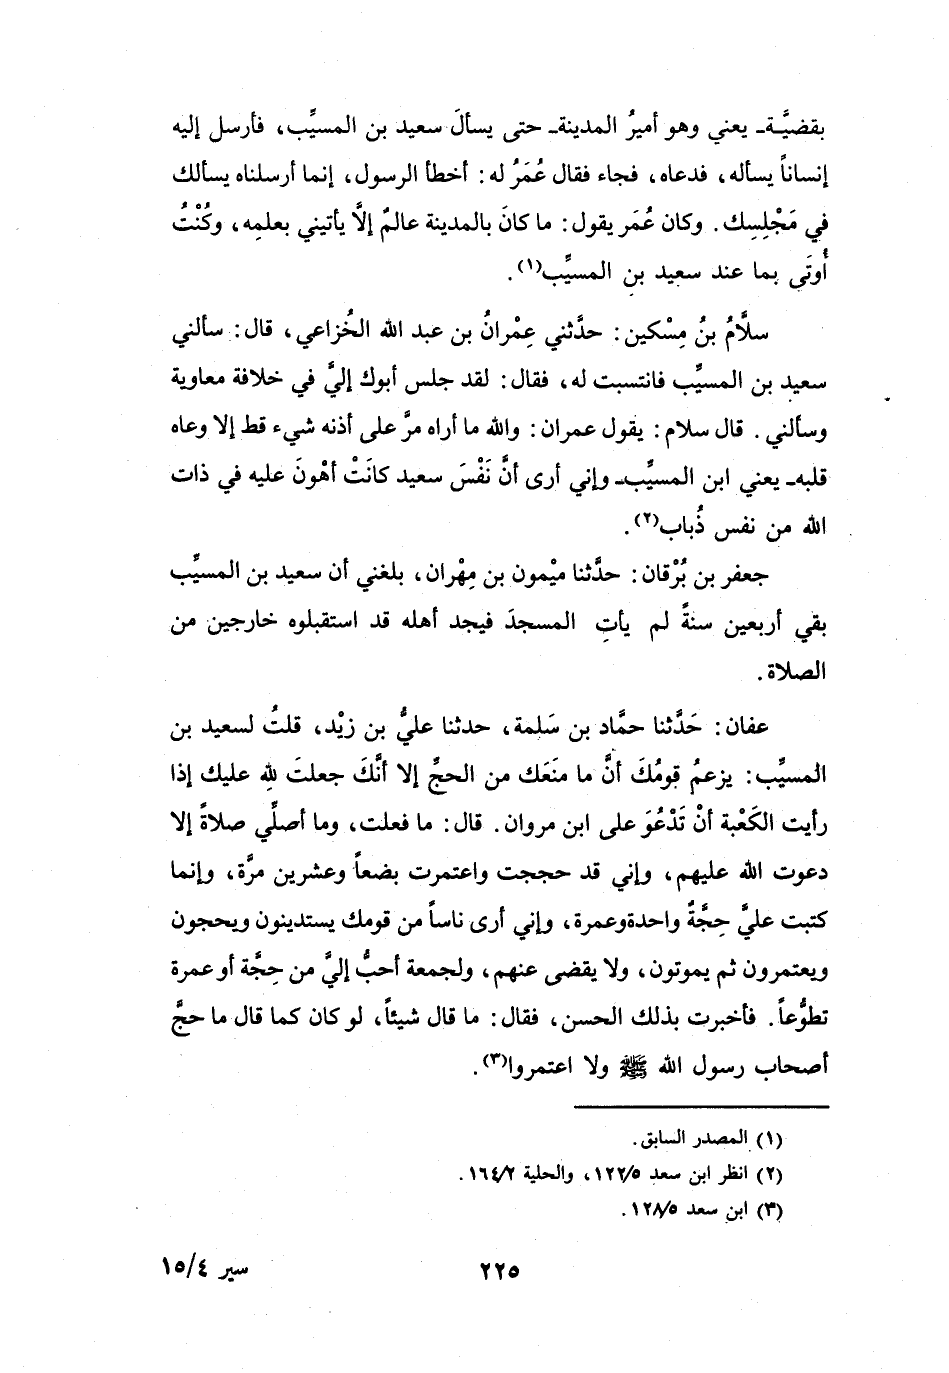 بقضيَّة ـ يعني وهو أميرُ المدينة ـ حتى يسألَ سعيد بن المسيِّب، فأرسل إليه
إنساناً يسأله، فدعاه، فجاء فقال عُمَرُ له: أخطأ الرسول، إنما أرسلناه يسألك
في مَجْلِسِك. وكان عُمَر يقول: ما كانَ بالمدينة عالمٌ إلَّا يأتيني بعلمِه، وكُنْتُ
أُوتَى بما عند سعيد بن المسيِّب(١).
سلَّامُ بنُ مِسْكين: حدَّثني عِمْرانُ بن عبد الله الخُزاعي، قال: سألني
سعيد بن المسيِّب فانتسبت له، فقال: لقد جلس أبوك إليَّ في خلافة معاوية
وسألني. قال سلام: يقول عمران: والله ما أراه مرَّ على أذنه شيء قط إلا وعاه
قلبه ـ يعني ابن المسيِّب ـ وإني أرى أنَّ نَفْسَ سعيد كانَتْ أهْونَ عليه في ذات
الله من نفس ذُباب(٢).
جعفر بن بُرْقان: حدَّثنا ميْمون بن مِهْران، بلغني أن سعيد بن المسيِّب
بقي أربعين سنةً لم يأتِ المسجدَ فيجد أهله قد استقبلوه خارجين من
الصلاة.
عفان: حَدَّثنا حمَّاد بن سَلمة، حدثنا عليُّ بن زيْد، قلتُ لسعيد بن
المسيِّب: يزعمُ قومُكَ أنَّ ما منَعَك من الحجِّ إلا أنَّكَ جعلتَ لله عليك إذا
رأيت الكَعْبة أنْ تَدْعُوَ على ابن مروان. قال: ما فعلت، وما أصلِّي صلاةً إلا
دعوت الله عليهم، وإني قد حججت واعتمرت بضعاً وعشرين مرَّة، وإنما
كتبت عليَّ حِجَّةٌ واحدةوعمرة، وإني أرى ناساً من قومك يستدينون ويحجون
ويعتمرون ثم يموتون، ولا يقضى عنهم، ولجمعة أحبُّ إليَّ من حِجَّة أو عمرة
تطوُّعاً. فأخبرت بذلك الحسن، فقال: ما قال شيئاً، لو كان كما قال ما حجَّ
أصحاب رسول الله ﷺ ولا اعتمروا(٣).
(١) المصدر السابق.
(٢) انظر ابن سعد ١٢٢/٥، والحلية ١٦٤/٢.
(٣) ابن سعد ١٢٨/٥.
٢٢٥
سير ١٥/٤